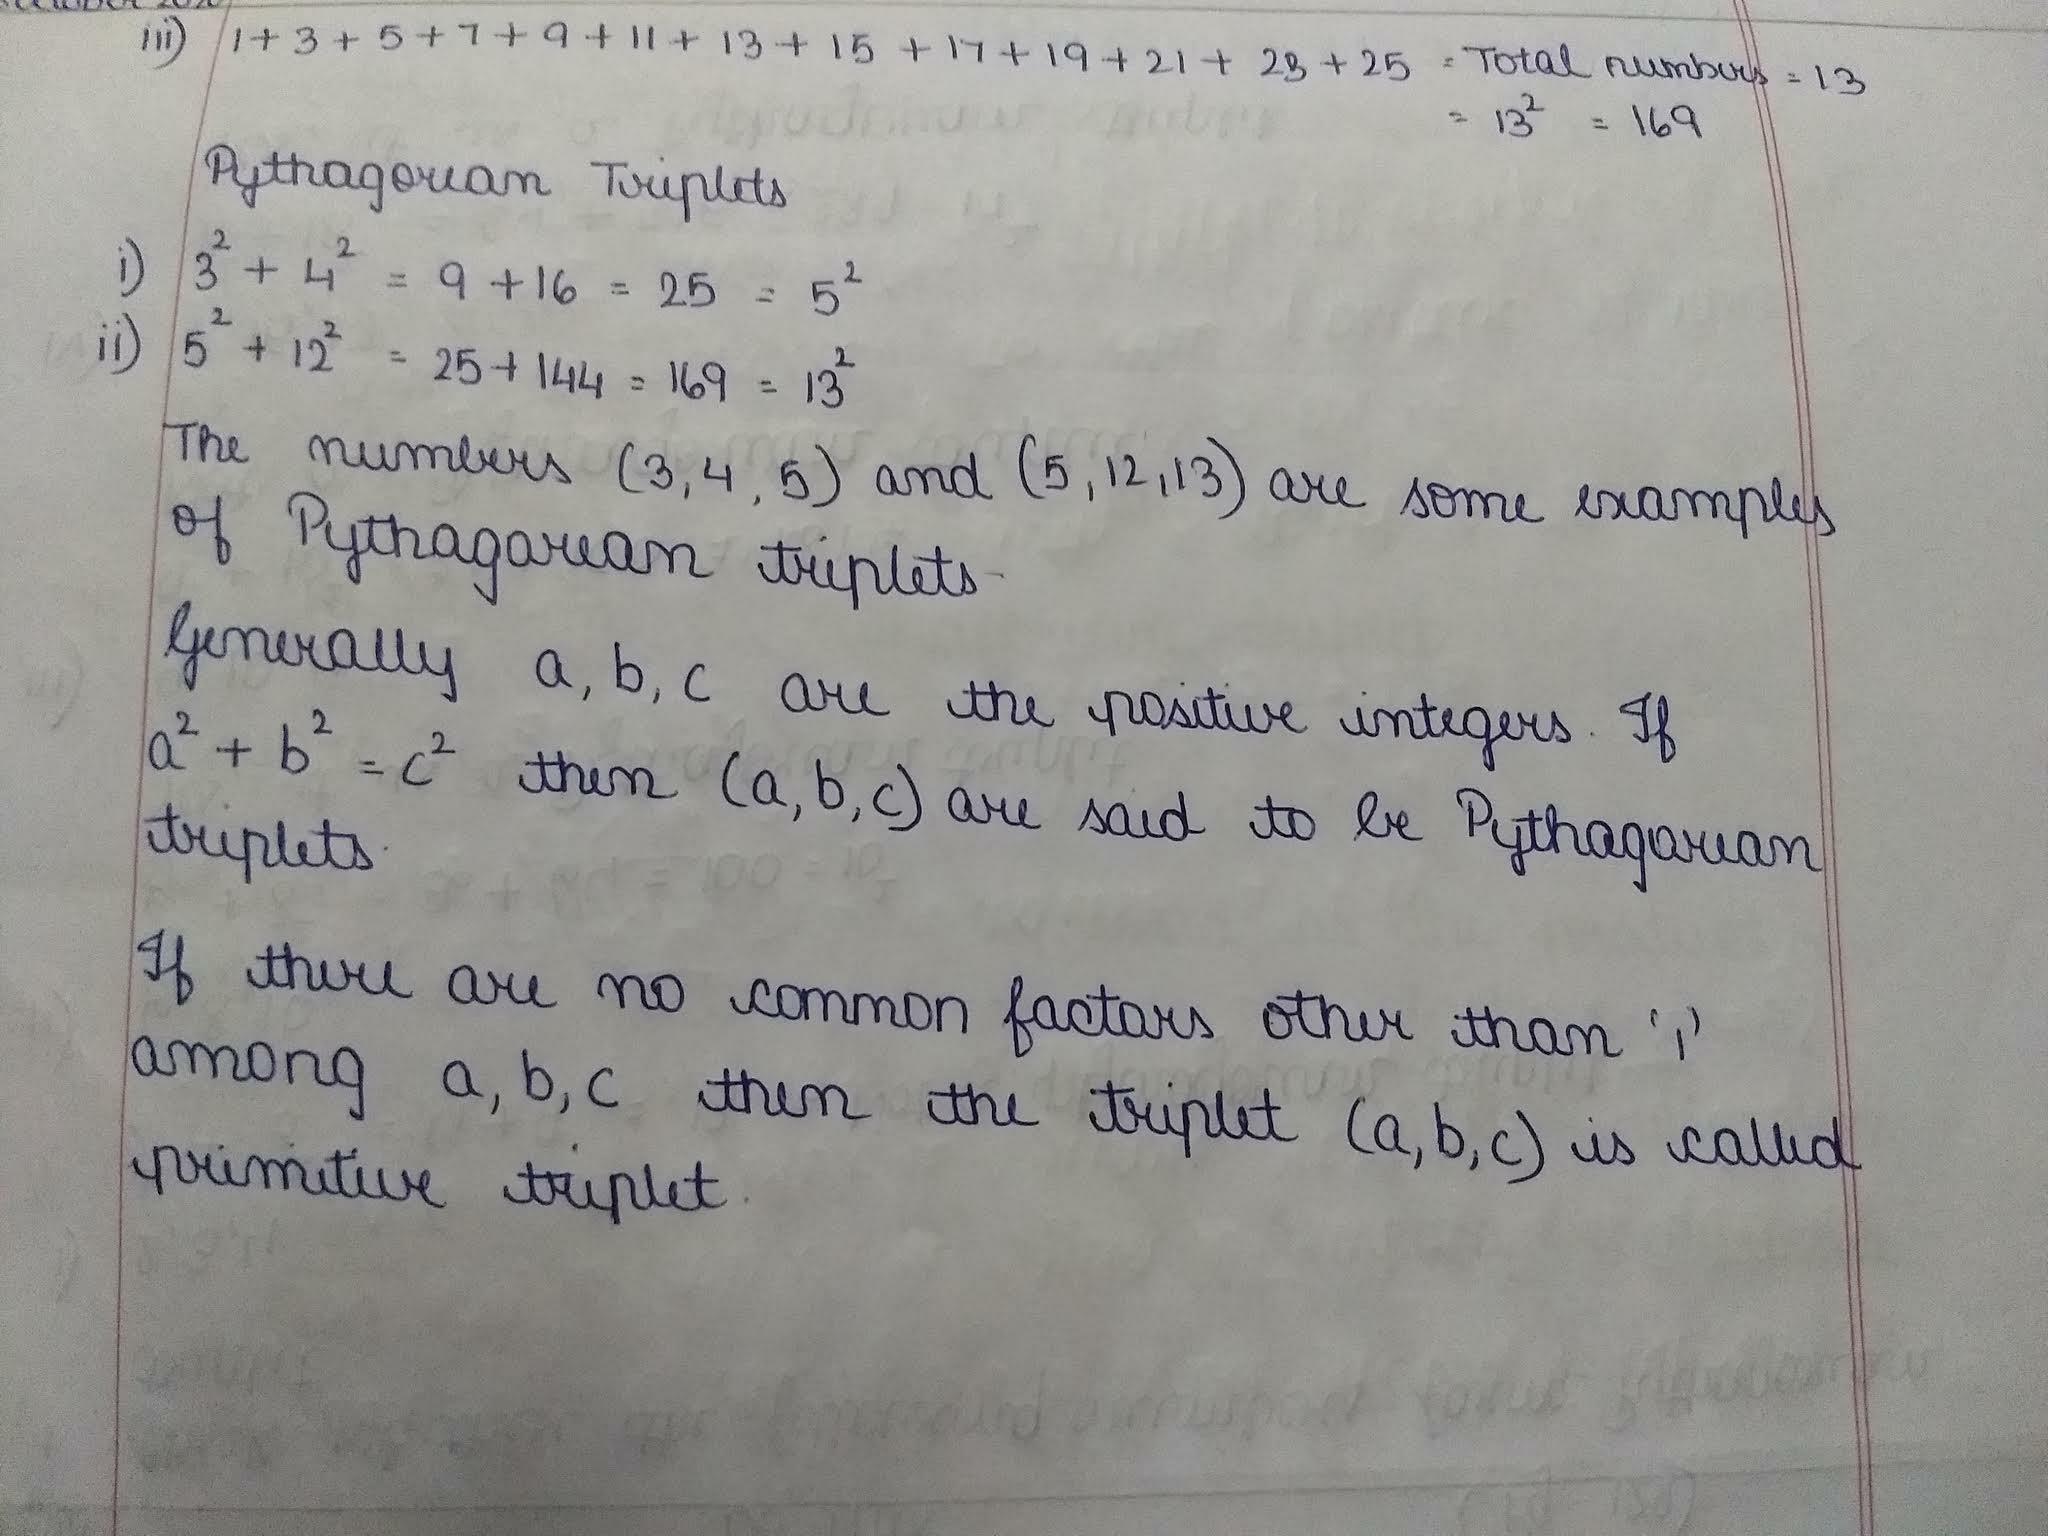 iii) 1 + 3 + 5 + 7 + 9 + 11 + 13 + 15 + 17 + 19 + 21 + 23 + 25 = Total numbers = 13
= 13² = 169
Pythagorean Triplets
i) 3² + 4² = 9 + 16 = 25 = 5²
ii) 5² + 12² = 25 + 144 = 169 = 13²
The numbers (3, 4, 5) and (5, 12, 13) are some examples
of Pythagorean triplets.
Generally a, b, c are the positive integers. If
a² + b² = c² then (a, b, c) are said to be Pythagorean
triplets.
If there are no common factors other than '1'
among a, b, c then the triplet (a, b, c) is called
primitive triplet.